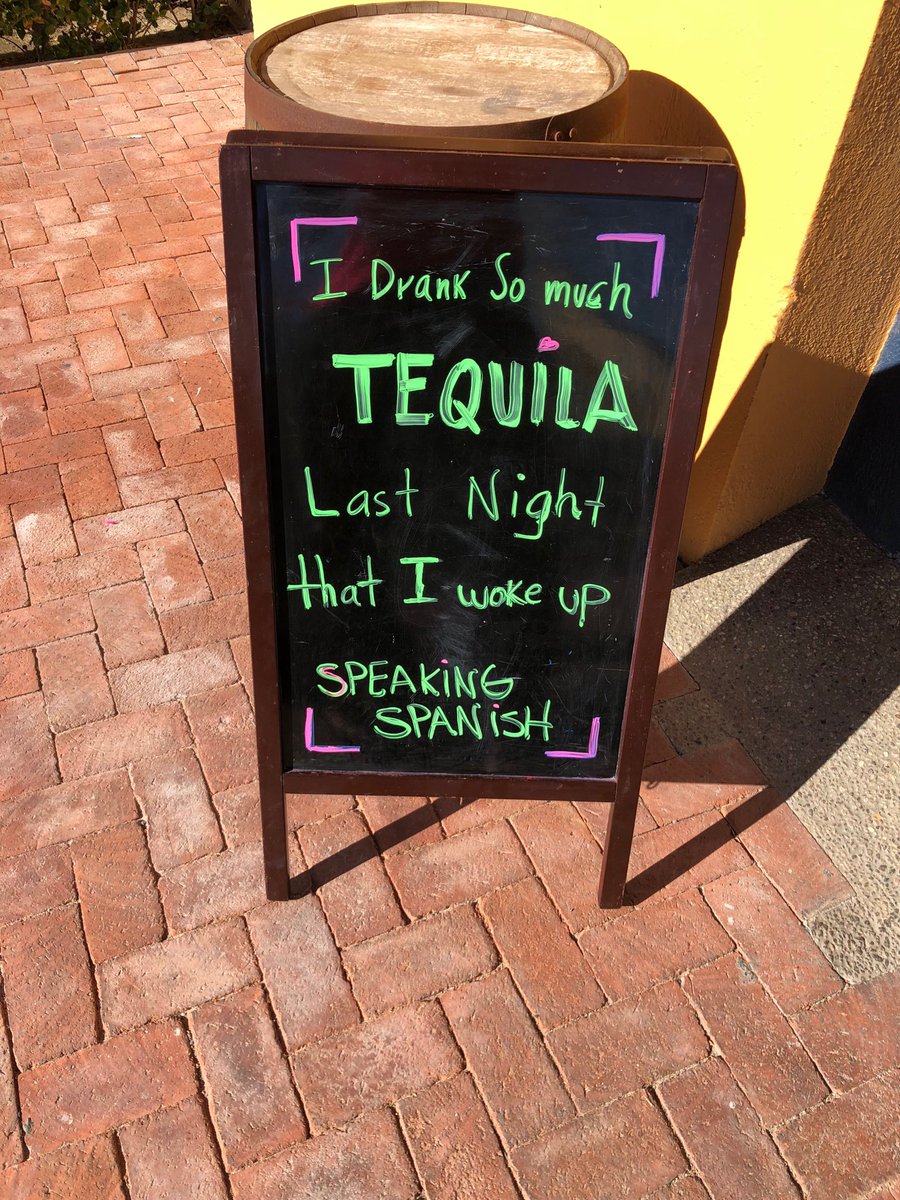 I Drank So much
TEQUILA
Last Night
that I woke up
SPEAKiNG
SPANiSH